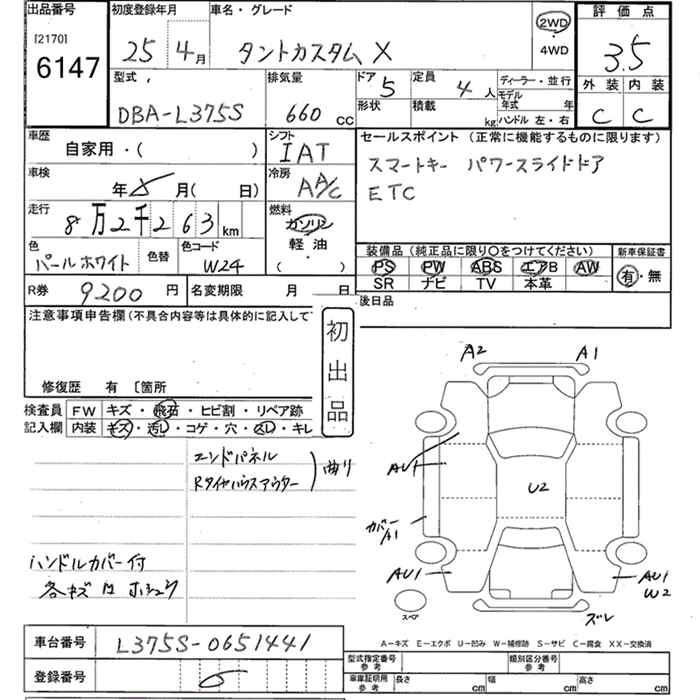 出品番号
[2170]
6147
初度登録年月
25 4月
車名・グレード
タントカスタム X
2WD
・
4WD
評価点
3.5
外装 内装
C C
型式
DBA-L375S
排気量
660 cc
ドア 5
形状
定員 4人
積載 kg
ディーラー・並行
モデル年式 年
ハンドル 左・右
車歴
自家用・( )
シフト
IAT
セールスポイント (正常に機能するものに限ります)
スマートキー パワースライドドア
ETC
車検
年 月( 日)
冷房
AA/C
走行
8万2千263km
燃料
ガソリン
軽油
( )
色
パールホワイト
色替
色コード
W24
装備品(純正品に限り○をつけてください)
PS PW ABS エアB AW
SR ナビ TV 本革
新車保証書
有・無
R券 9200円
名変期限 月 日
後日品
注意事項申告欄(不具合内容等は具体的に記入して
修復歴 有 〔箇所
初出品
検査員記入欄
FW キズ・飛石・ヒビ割・リペア跡
内装 キズ・汚レ・コゲ・穴・スレ・キレ
エンドパネル
Rタイヤハウスアウター
曲り
ハンドルカバー付
A2 A1
AU1
U2
カバー
A1
AU1
AU1
W2
スペア
ズレ
A-キズ E-エクボ U-凹み W-補修跡 S-サビ C-腐食 XX-交換済
車台番号 L375S-0651441
登録番号
型式指定番号 参考
類別区分番号 参考
車庫証明用 参考
長さ cm 幅 cm 高さ cm